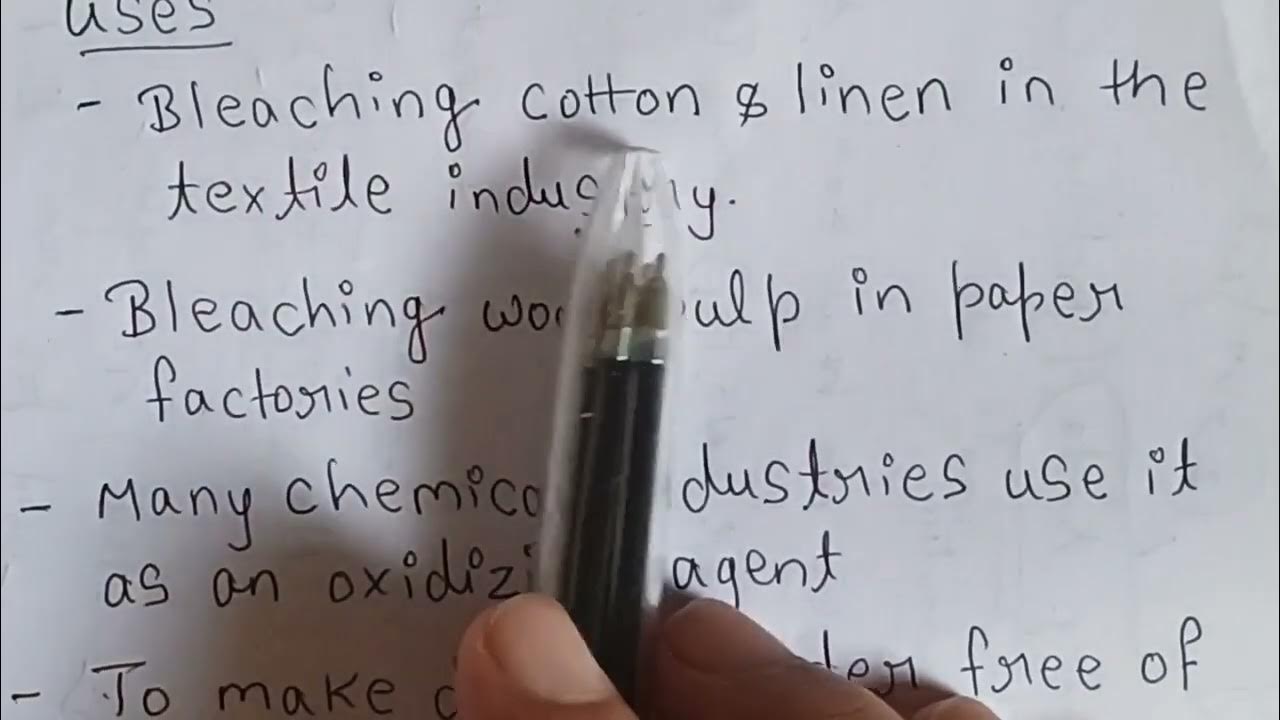 uses
- Bleaching cotton & linen in the
textile industry.
- Bleaching wood pulp in paper
factories
- Many chemical industries use it
as an oxidizing agent
- To make free of